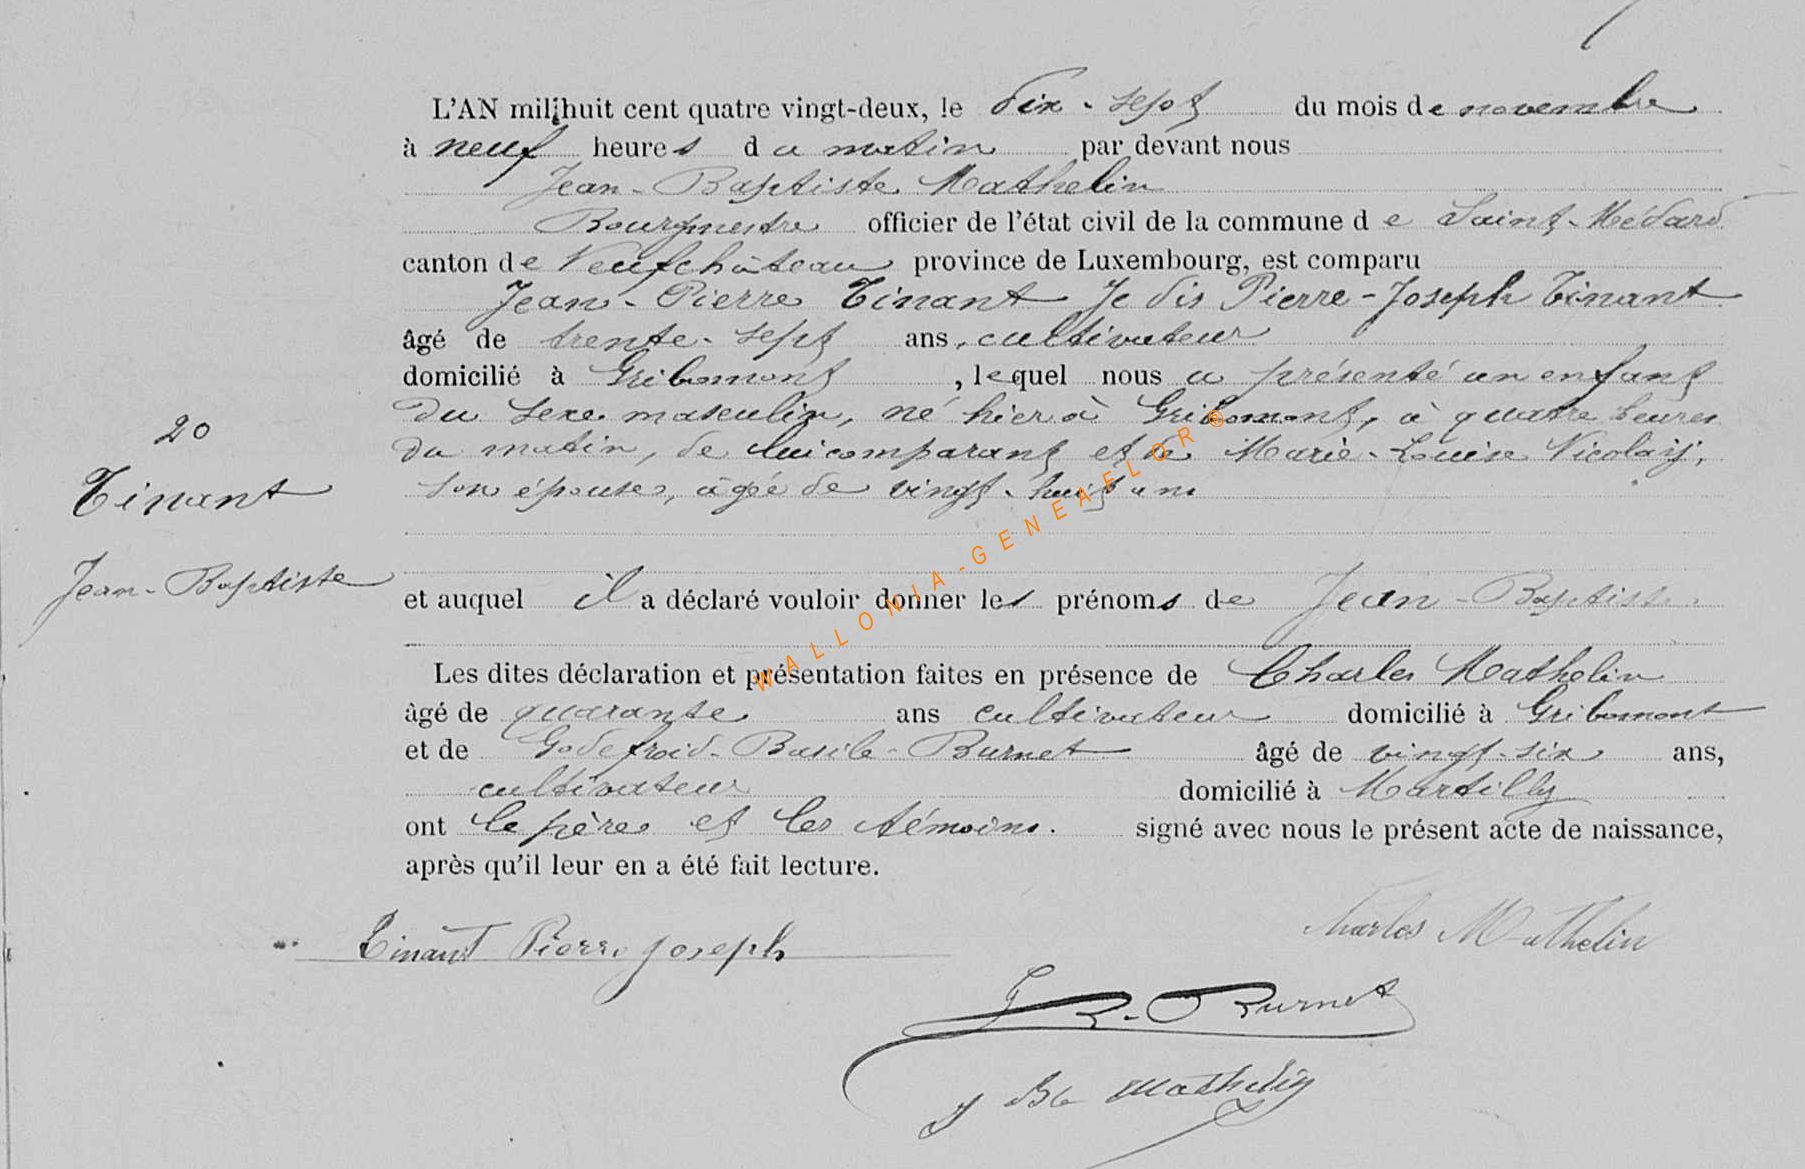 L'AN mil huit cent quatre vingt-deux, le dix-sept du mois de novembre
à neuf heures du matin par devant nous
Jean-Baptiste Mathelin
Bourgmestre officier de l'état civil de la commune de Saint-Médard
canton de Neufchâteau province de Luxembourg, est comparu
Jean-Pierre Tinant Je dis Pierre-Joseph Tinant
âgé de trente-sept ans, cultivateur
domicilié à Gribomont, lequel nous a présenté un enfant
du sexe masculin, né hier à Gribomont, à quatre heures
du matin, de lui comparant et de Marie-Louise Nicolaÿ,
son épouse, âgée de vingt-huit ans
20
Tinant
Jean-Baptiste
et auquel il a déclaré vouloir donner les prénoms de Jean-Baptiste
Les dites déclaration et présentation faites en présence de Charles Mathelin
âgé de quarante ans cultivateur domicilié à Gribomont
et de Godefroid-Basile-Burnet âgé de vingt-six ans,
cultivateur domicilié à Martilly
ont le père et les témoins. signé avec nous le présent acte de naissance,
après qu'il leur en a été fait lecture.
Tinant Pierre joseph
Charles Mathelin
G B. Burnet
J Bte Mathelin
WALLONIA-GENEAELOR®